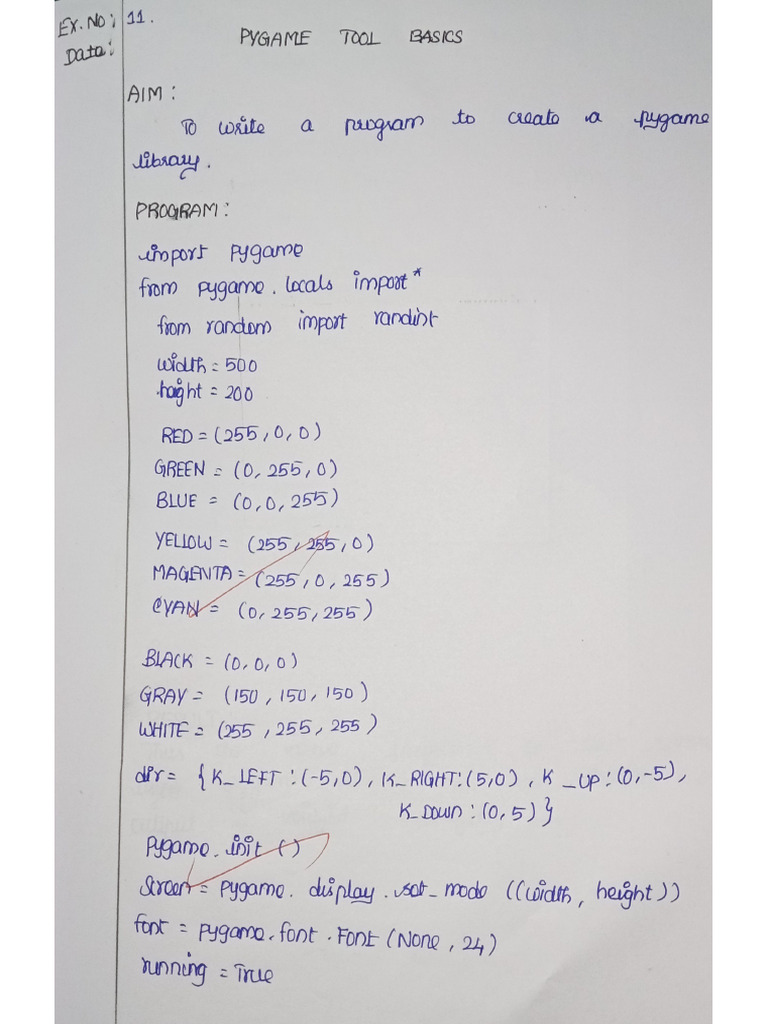 Ex. No: 11.
Data:
PYGAME TOOL BASICS
AIM:
To write a program to create a pygame
library.
PROGRAM:
import pygame
from pygame. locals import*
from random import randint
width = 500
height = 200
RED = (255, 0, 0)
GREEN = (0, 255, 0)
BLUE = (0, 0, 255)
YELLOW = (255, 255, 0)
MAGENTA = (255, 0, 255)
CYAN = (0, 255, 255)
BLACK = (0, 0, 0)
GRAY = (150, 150, 150)
WHITE = (255, 255, 255)
dir = {K_LEFT : (-5, 0), K_RIGHT: (5, 0), K_UP: (0, -5),
K_DOWN : (0, 5)}
Pygame. init ()
Screen = pygame. display. set_mode ((width, height))
font = pygame. font. Font (None, 24)
running = True